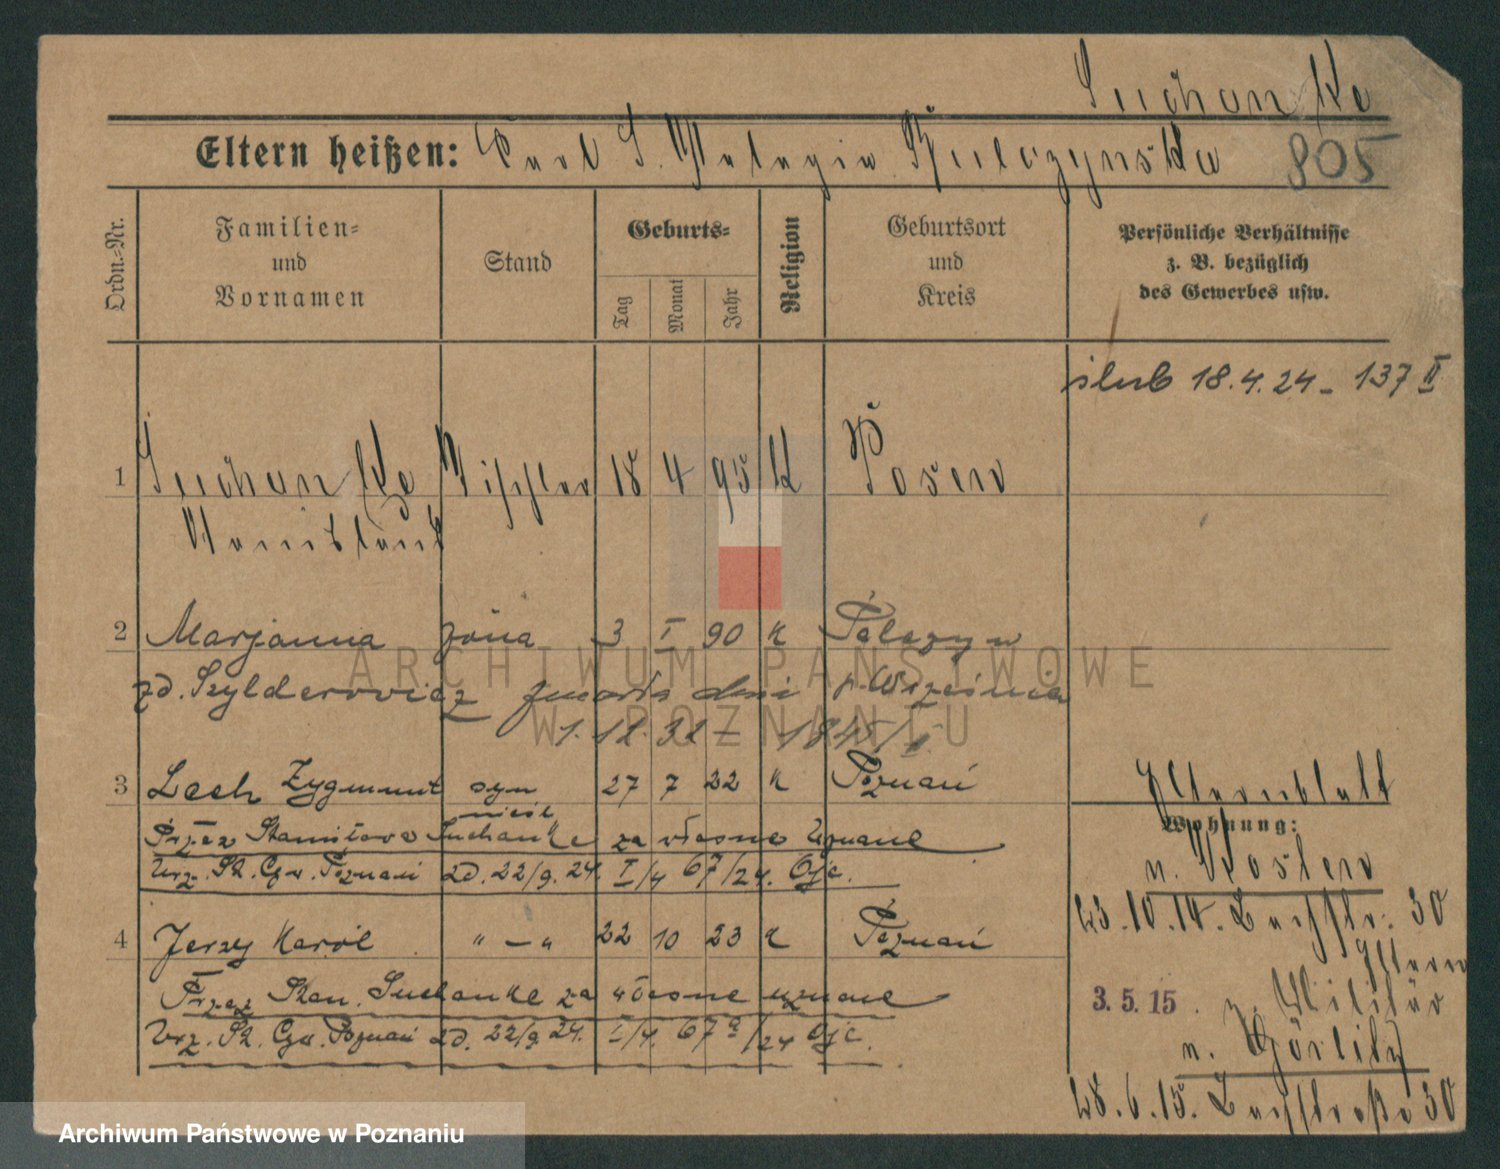 Suchanke
Eltern heißen: Karl S. Pelagia Rulczynska 805
Ordn.-Nr.
Familien-
und
Vornamen
Stand
Geburts-
Tag
Monat
Jahr
Religion
Geburtsort
und
Kreis
Persönliche Verhältnisse
z. B. bezüglich
des Gewerbes usw.
ślub 18.4.24 - 137 II
1 Suchanke Tischler 18 4 95 K Posen
Stanislaus
2 Marjanna żona 3 I 90 K
zd. Szylderowicz zmarła dni p. Września
1.12.32 - 1845/I
3 Lech Zygmunt syn 27 7 22 K Poznań
nieśl
Przez Stanisława Suchanke za własne uznane
Urz. St. Cyw. Poznań zd. 22/9. 24. I/4 67/24. Ojc.
4 Jerzy Karól " — " 22 10 23 K Poznań
Przez Stan. Suchanke za własne uznane
Urz. St. Cyw. Poznań zd. 22/9 24. I/4. 67a/24 Ojc.
Elternblatt
Wohnung:
n. Kosten
23.10.14. Bachstr. 30
Eltern
3.5.15 . z. Militär
n. Görlitz
28.6.15. Bachstraße 30
ARCHIWUM PAŃSTWOWE
W POZNANIU
Archiwum Państwowe w Poznaniu